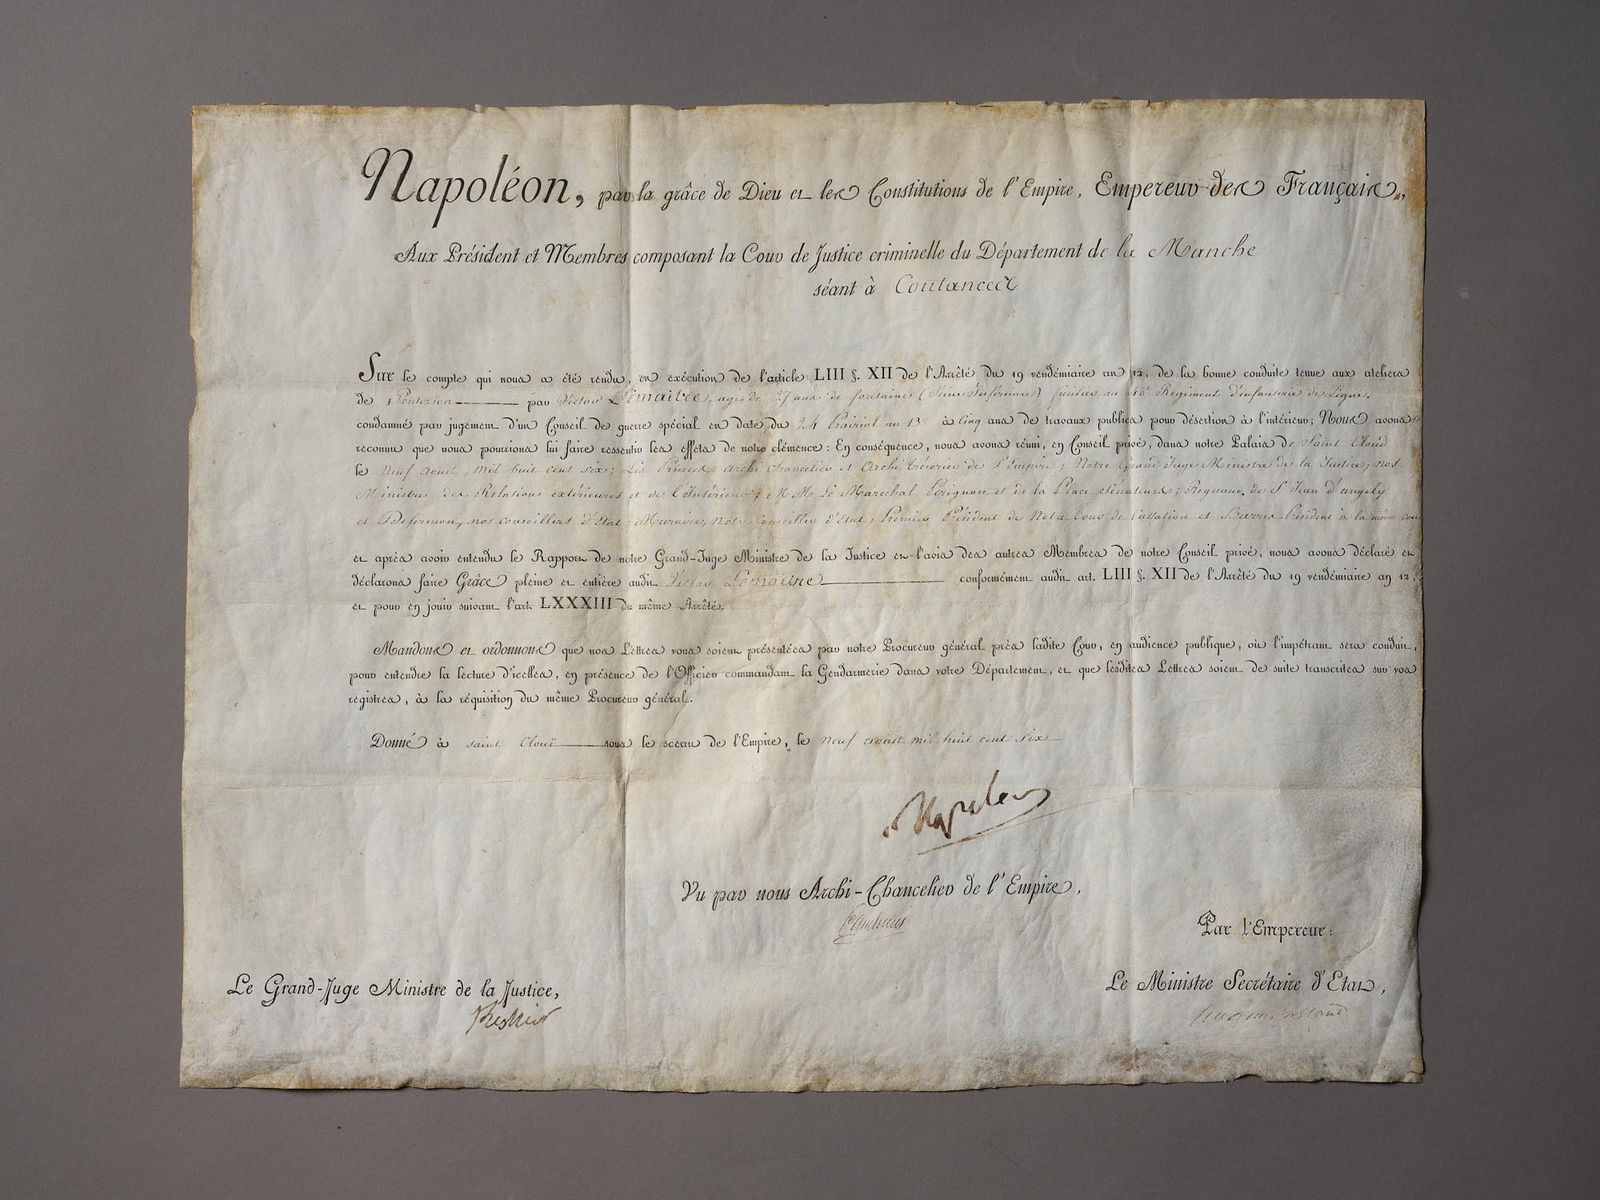 Napoléon, par la grâce de Dieu et les Constitutions de l'Empire, Empereur des Français,
Aux Président et Membres composant la Cour de Justice criminelle du Département de la Manche
séant à Coutances
Sur le compte qui nous a été rendu, en exécution de l'article LIII §. XII de l'Arrêté du 19 vendémiaire an 12, de la bonne conduite tenue aux ateliers
de Pontorson par Victor Lemaitre, agé de 27 ans de fontaines (Seine Inférieure) fusilier au Regiment d'infanterie de Ligne.
condamné par jugement d'un Conseil de guerre spécial en date du 24 Prairial an 13 à Cinq ans de travaux publics pour désertion à l'intérieur; Nous avons
reconnu que nous pourrions lui faire ressentir les effets de notre clémence: En conséquence, nous avons réuni, en Conseil privé, dans notre Palais de Saint Cloud
le Neuf Aout, mil huit cent six; Les Princes Archi Chancelier et Archi Trésorier de l'Empire; Notre Grand Juge Ministre de la Justice; nos
Ministres des Relations extérieures et de l'Intérieur; M.M. Le Marechal Perignon et de la Place Sénateurs; Regnaud de St Jean d'angely
et Defermon, nos conseillers d'Etat; Muraire, Notre Conseiller d'Etat, Premier Président de Notre Cour de Cassation et Barris Président à la même Cour
et après avoir entendu le Rapport de notre Grand-Juge Ministre de la Justice et l'avis des autres Membres de notre Conseil privé, nous avons déclaré et
déclarons faire Grâce pleine et entière audit Victor Lemaitre conformément audit art. LIII §. XII de l'Arrêté du 19 vendémiaire an 12,
et pour en jouir suivant l'art. LXXXIII du même Arrêté.
Mandons et ordonnons que nos Lettres vous soient présentées par notre Procureur général près ladite Cour, en audience publique, où l'impétrant sera conduit,
pour entendre la lecture d'icelles, en présence de l'Officier commandant la Gendarmerie dans votre Département, et que lesdites Lettres soient de suite transcrites sur vos
registres, à la réquisition du même Procureur général.
Donné à Saint Cloud sous le sceau de l'Empire, le Neuf Aoust mil huit cent six
Napoleon
Vu par nous Archi-Chancelier de l'Empire,
Cambaceres
Par l'Empereur:
Le Grand-Juge Ministre de la Justice,
Le Ministre Secrétaire d'Etat,
Regnier